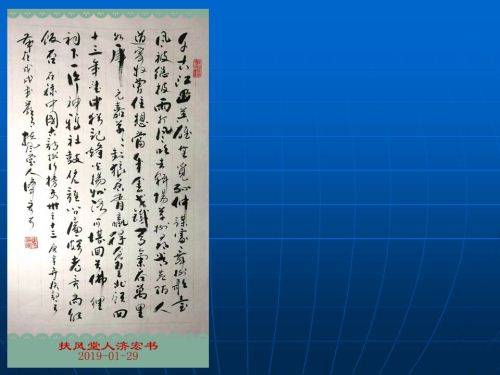 千古江山英雄无觅孙仲谋处舞榭歌台
风流总被雨打风吹去斜阳草树寻常巷陌人
道寄奴曾住想当年金戈铁马气吞万里
如虎元嘉草草封狼居胥赢得仓皇北顾四
十三年望中犹记烽火扬州路可堪回首佛狸
祠下一片神鸦社鼓凭谁问廉颇老矣尚能
饭否
戊戌 扶风堂人济宏
扶风堂人济宏书
2019-01-29